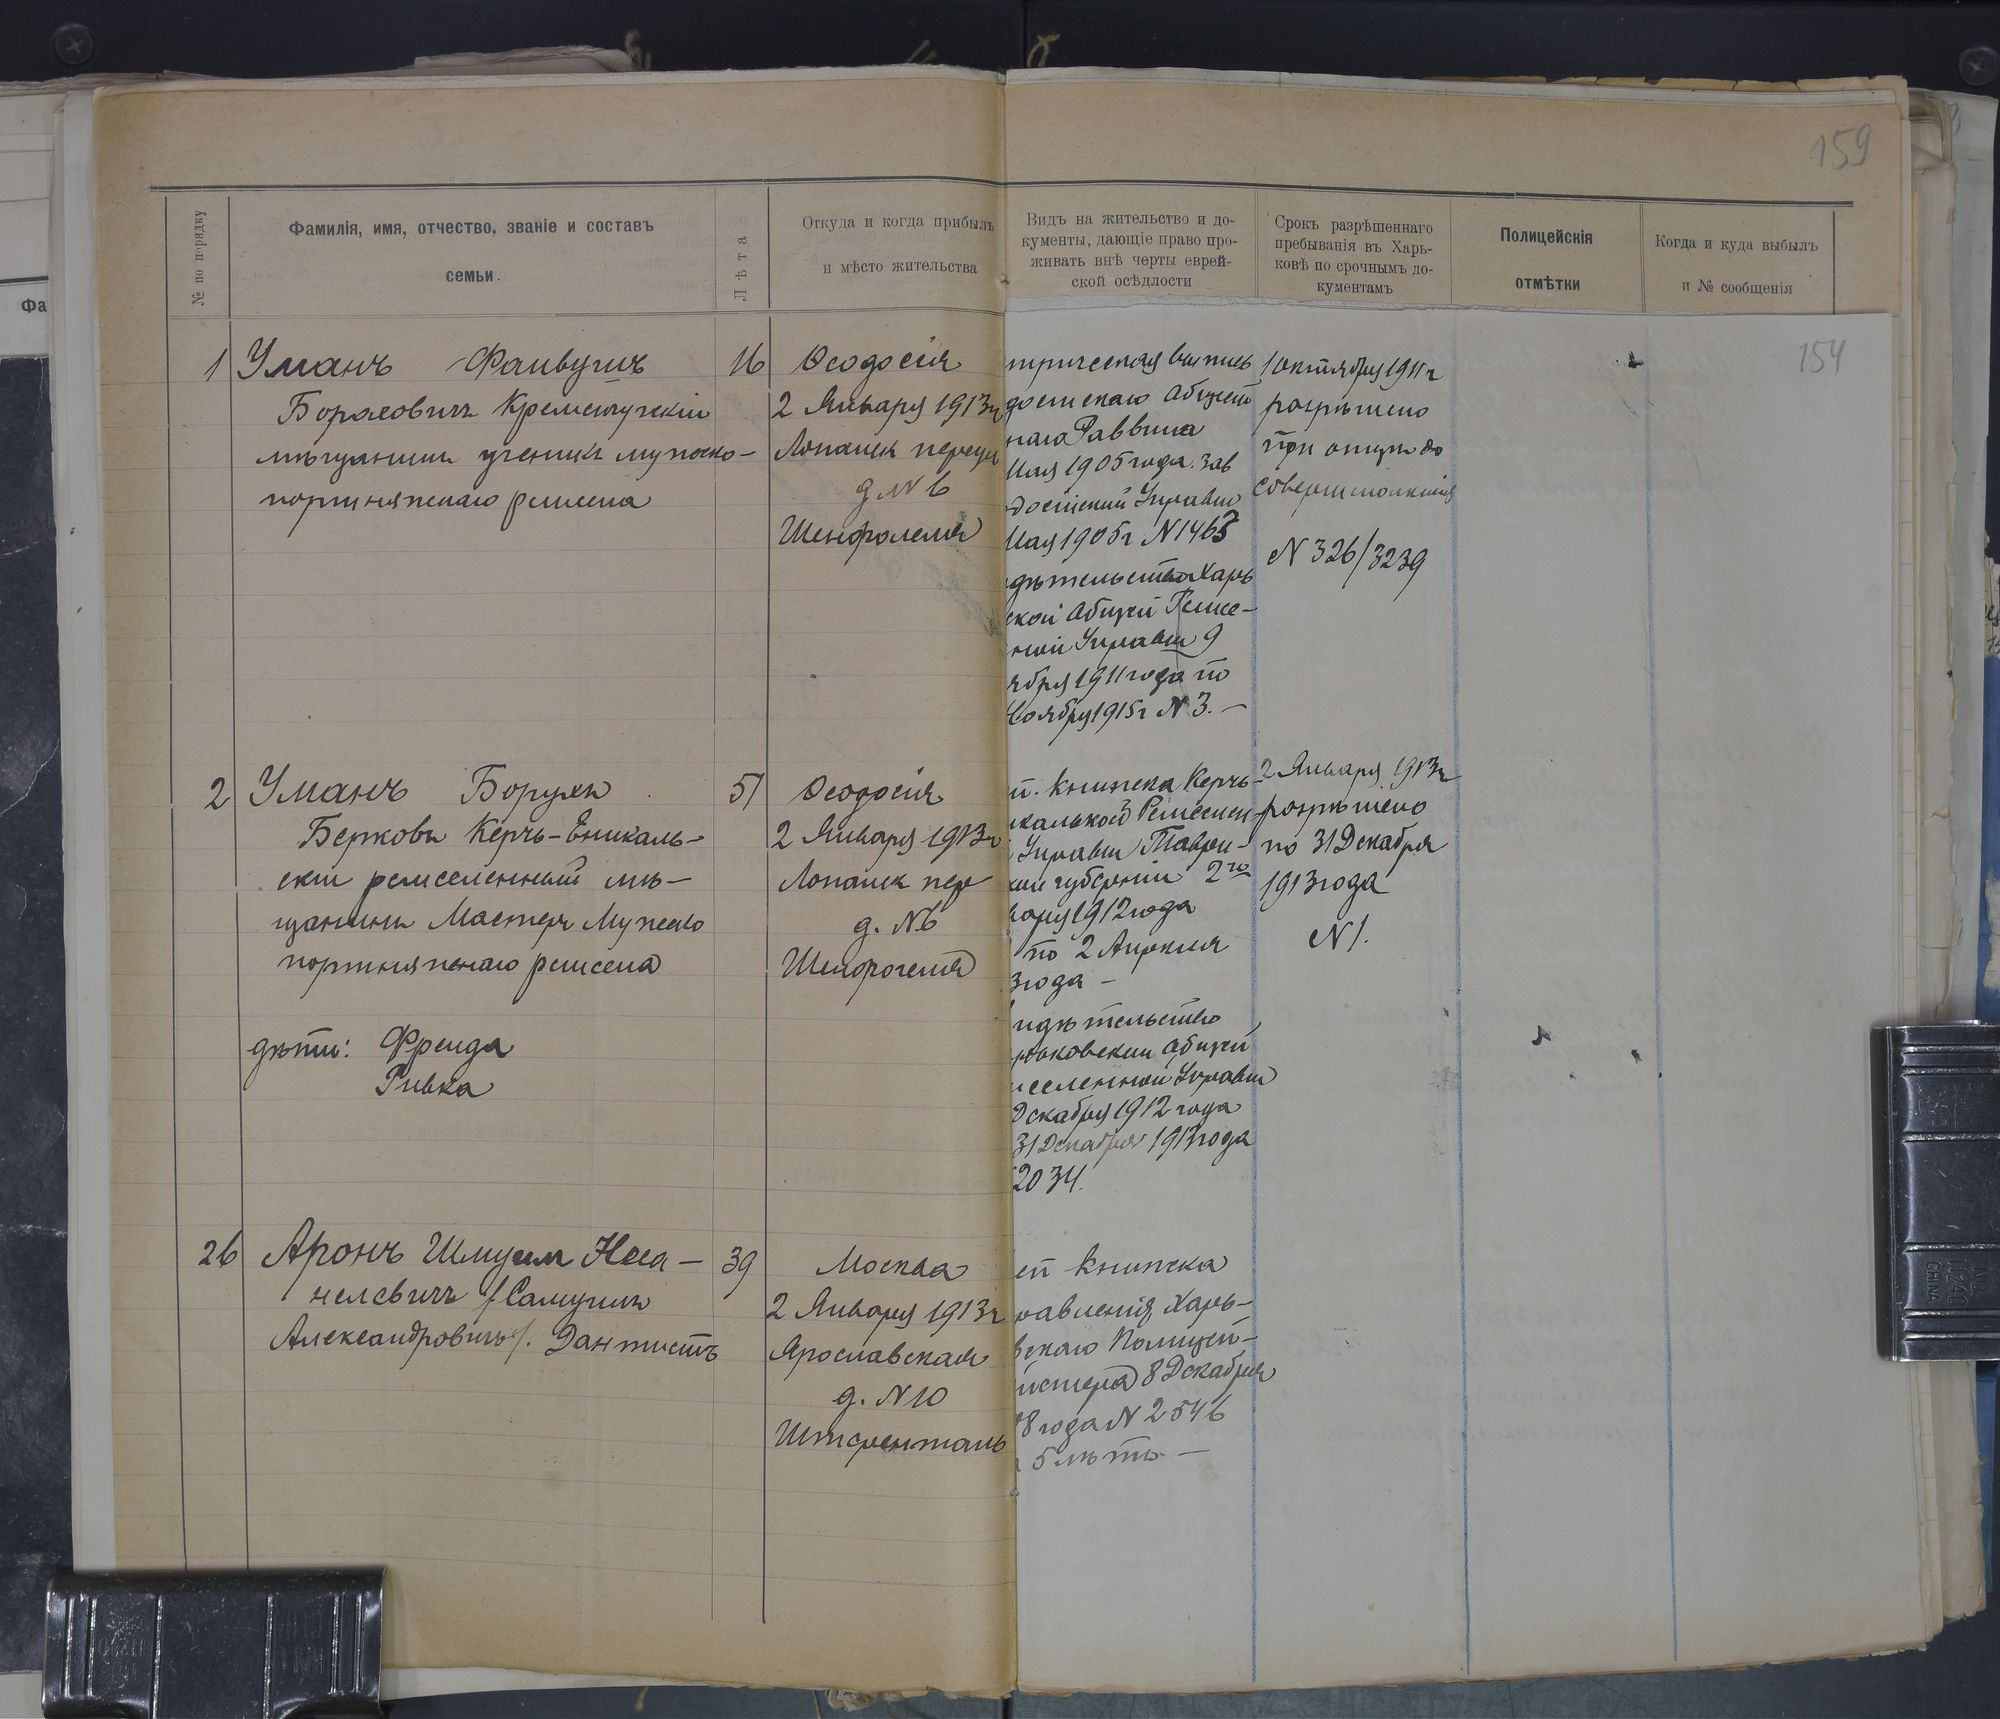 159
№ по порядку
Фамилія, имя, отчество, званіе и составъ
семьи.
Лѣта
Откуда и когда прибылъ
и мѣсто жительства
Видъ на жительство и до-
кументы, дающіе право про-
живать внѣ черты еврей-
ской осѣдлости
Срокъ разрѣшеннаго
пребыванія въ Харь-
ковѣ по срочнымъ до-
кументамъ
Полицейскія
отмѣтки
Когда и куда выбылъ
и № сообщенія
Фа
154
1
Уманъ Файвушъ
Борохович Кременчугскій
мѣщанинъ ученикъ мужско-
портняжскаго ремесла
16
Ѳеодосія
2 Января 1913г
Лопанск переул
д. № 6
трическая выпись
досійскаго Общест
наго Раввина
Мая 1905 года. зав
досійской Управы
Мая 1905г № 1463
дѣтельство Харь
ской Общей Ремес-
ной Управы 9
ября 1911 года по
Ноября 1915г № 3. –
1 октября 1911г
разрѣшено
при отцѣ до
совершеннолѣтія
№ 326/3239
2
Уманъ Борухъ
Берковъ Керчь-Еникаль-
скій ремесленный мѣ-
щанинъ Мастеръ Мужско
портняжскаго ремесла
дѣти: Фрейда
Ривка
51
Ѳеодосія
2 Января 1913г
Лопанск пер
д. № 6
й. книжка Керчь-
икальской Ремеслен
Управы Таври-
кой губерніи 2го
1912 года
по 2 Апрѣля
3 года –
идѣтельство
рьковской Общей
месленной Управы
Декабря 1912 года
31 Декабря 1913 года
2034.
2 Января 1913г
разрѣшено
по 31 Декабря
1913 года
№ 1.
26
Аронъ Шмуил
нелевичъ /Самуилъ
Александровичъ/. Дантистъ
39
Москва
2 Января 1913г
Ярославская
д. № 10
ей книжка
равленія Харь-
вскаго Полицей-
йстера 8 Декабря
8 года № 2546
5 лѣтъ –